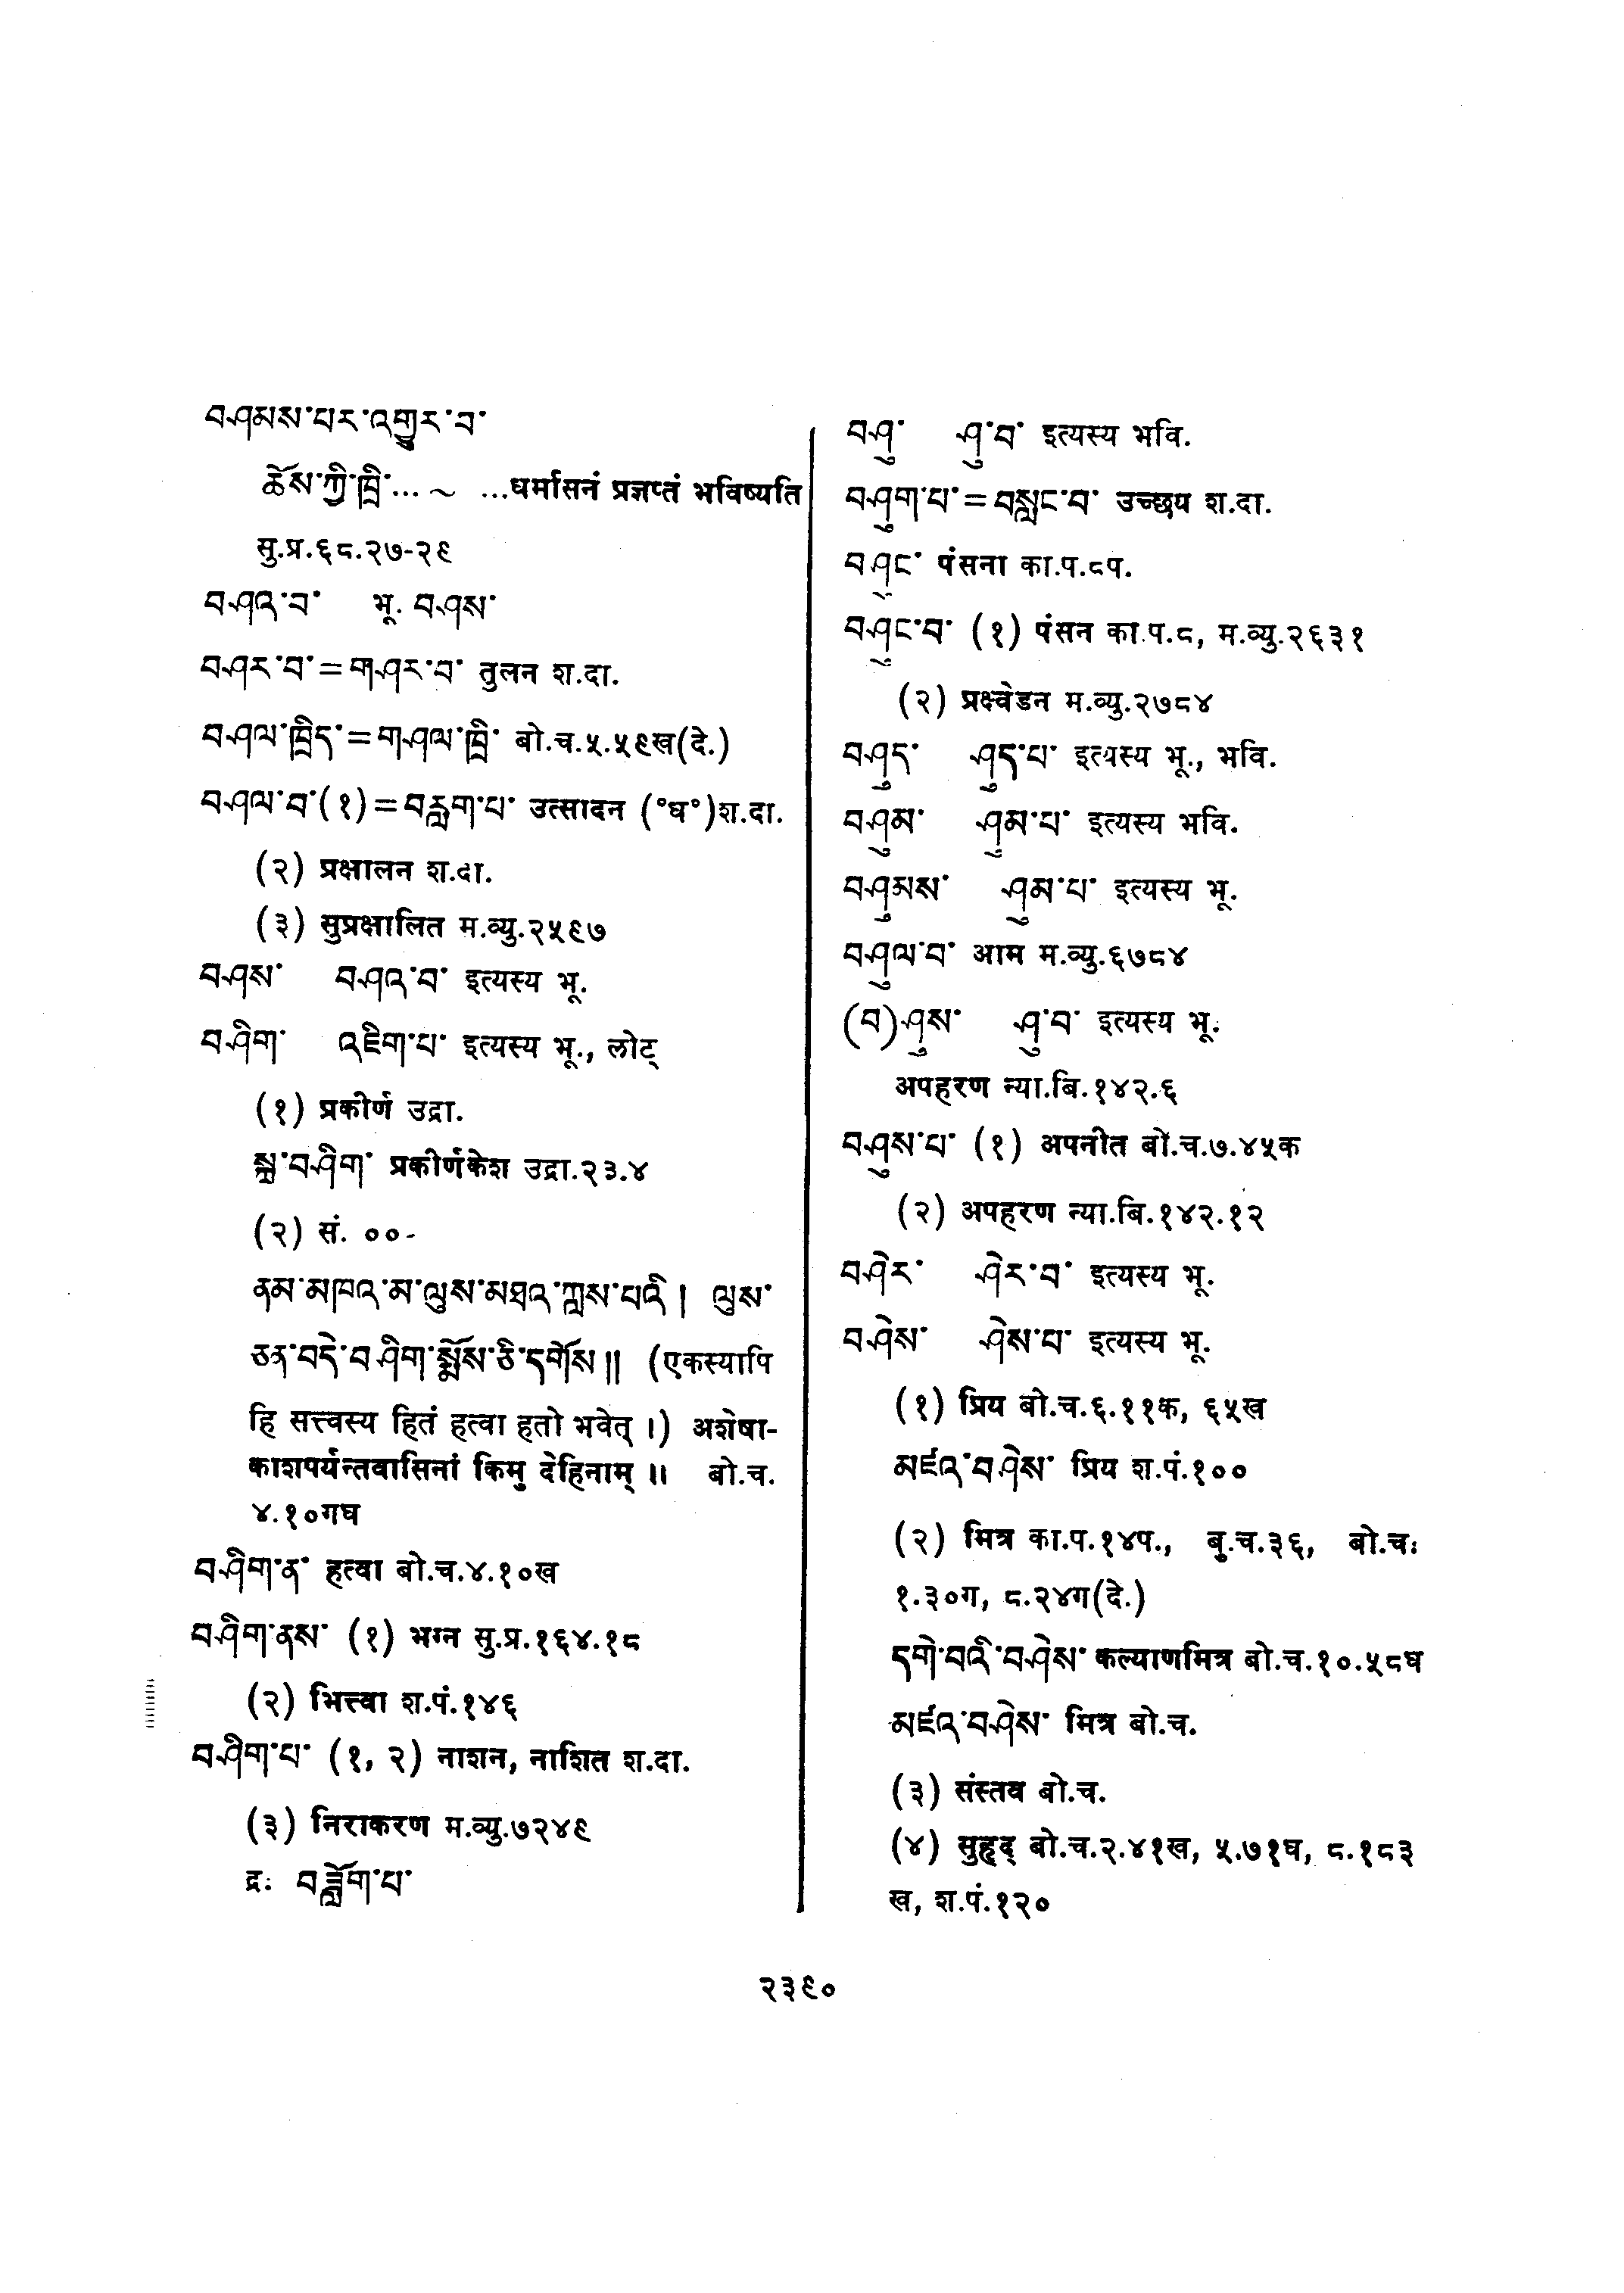 བཤམས་པར་འགྱུར་བ་
ཆོས་ཀྱི་ཁྲི་... ~ ...धर्मासनं प्रज्ञप्तं भविष्यति
सु.प्र.६८.२७-२९
བཤའ་བ་ भू. བཤས་
བཤར་བ་=གཤར་བ་ तुलन श.दा.
བཤལ་ཁྲིད་=གཤལ་ཁྲི་ बो.च.५.५९ख(दे.)
བཤལ་བ་(१)=བརླག་པ་ उत्सादन (°घ°)श.दा.
(२) प्रक्षालन श.दा.
(३) सुप्रक्षालित म.व्यु.२५९७
བཤས་ བཤའ་བ་ इत्यस्य भू.
བཤིག་ འཇིག་པ་ इत्यस्य भू., लोट्
(१) प्रकीर्ण उद्रा.
སྐྲ་བཤིག་ प्रकीर्णकेश उद्रा.२३.४
(२) सं. ००-
ནམ་མཁའ་མ་ལུས་མཐའ་ཀླས་པའི། ལུས་
ཅན་བདེ་བཤིག་སྨོས་ཅི་དགོས།། (एकस्यापि
हि सत्त्वस्य हितं हत्वा हतो भवेत् ।) अशेषा-
काशपर्यन्तवासिनां किमु देहिनाम् ॥ बो.च.
४.१०गघ
བཤིག་ན་ हत्वा बो.च.४.१०ख
བཤིག་ནས་ (१) भग्न सु.प्र.१६४.१८
(२) भित्त्वा श.पं.१४६
བཤིག་པ་ (१, २) नाशन, नाशित श.दा.
(३) निराकरण म.व्यु.७२४९
द्रः བཟློག་པ་
བཤུ་ ཤུ་བ་ इत्यस्य भवि.
བཤུག་པ་=བསླང་བ་ उच्छ्रय श.दा.
བཤུང་ पंसना का.प.८प.
བཤུང་བ་ (१) पंसन का.प.८, म.व्यु.२६३१
(२) प्रक्ष्वेडन म.व्यु.२७८४
བཤུད་ ཤུད་པ་ इत्यस्य भू., भवि.
བཤུམ་ ཤུམ་པ་ इत्यस्य भवि.
བཤུམས་ ཤུམ་པ་ इत्यस्य भू.
བཤུལ་བ་ आम म.व्यु.६७८४
(བ)ཤུས་ ཤུ་བ་ इत्यस्य भू.
अपहरण न्या.बि.१४२.६
བཤུས་པ་ (१) अपनीत बो.च.७.४५क
(२) अपहरण न्या.बि.१४२.१२
བཤེར་ ཤེར་བ་ इत्यस्य भू.
བཤེས་ ཤེས་པ་ इत्यस्य भू.
(१) प्रिय बो.च.६.११क, ६५ख
མཛའ་བཤེས་ प्रिय श.पं.१००
(२) मित्र का.प.१४प., बु.च.३६, बो.च.
१.३०ग, ८.२४ग(दे.)
དགེ་བའི་བཤེས་ कल्याणमित्र बो.च.१०.५८घ
མཛའ་བཤེས་ मित्र बो.च.
(३) संस्तव बो.च.
(४) सुहृद् बो.च.२.४१ख, ५.७१घ, ८.१८३
ख, श.पं.१२०
२३९०